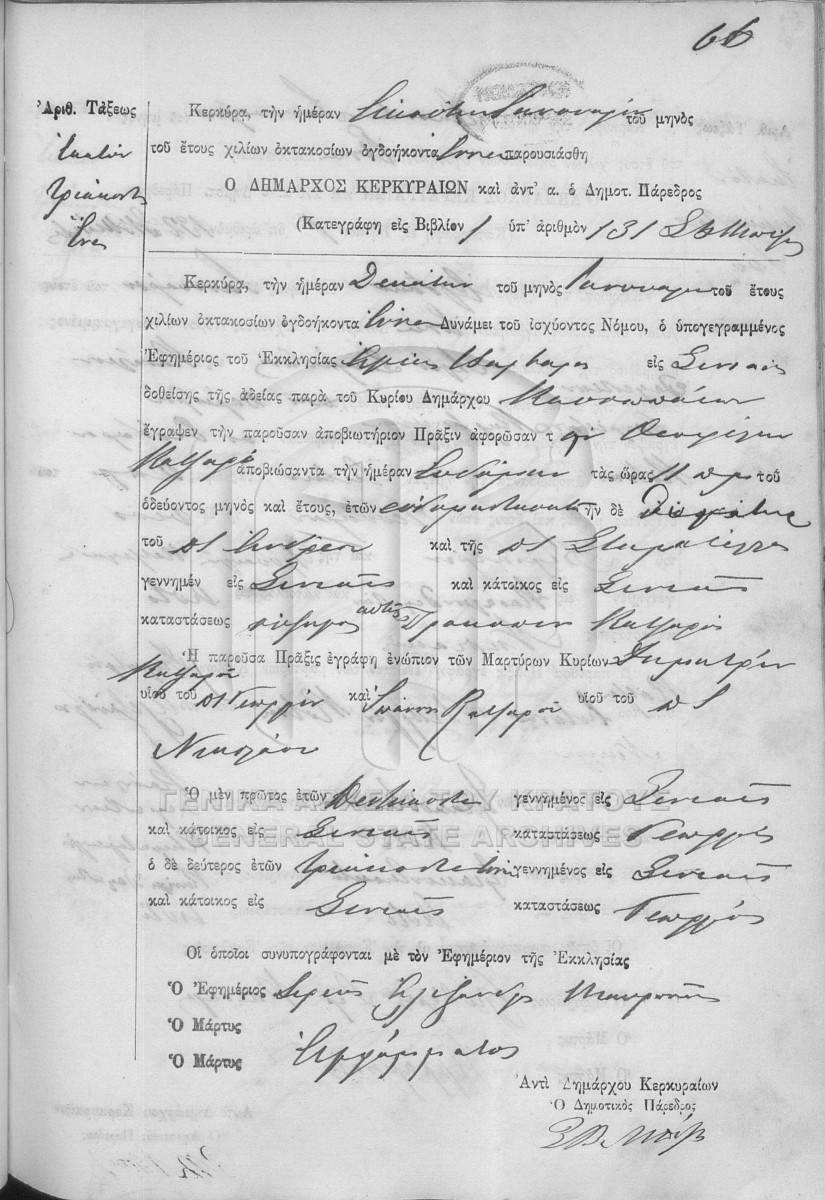 66
Ἀριθ. Τάξεως
Ἑκατόν
τριάκοντα
ἕνα
Κερκύρα, τὴν ἡμέραν Εἰκοστὴν Ἰανουαρίου τοῦ μηνὸς
τοῦ ἔτους χιλίων ὀκτακοσίων ὀγδοήκοντα ἐννέα παρουσιάσθη
Ο ΔΗΜΑΡΧΟΣ ΚΕΡΚΥΡΑΙΩΝ καὶ ἀντ' α. ὁ Δημοτ. Πάρεδρος
(Κατεγράφη εἰς Βιβλίον 1 ὑπ' ἀριθμὸν 131
Κερκύρα, τὴν ἡμέραν Δεκάτην τοῦ μηνὸς Ἰανουαρίου τοῦ ἔτους
χιλίων ὀκτακοσίων ὀγδοήκοντα ἐννέα Δυνάμει τοῦ ἰσχύοντος Νόμου, ὁ ὑπογεγραμμένος
Ἐφημέριος τοῦ Ἐκκλησίας Ἁγίας Βαρβάρας εἰς Σινιαῖς
δοθείσης τῆς ἀδείας παρὰ τοῦ Κυρίου Δημάρχου Κασσωπαίων
ἔγραψεν τὴν παροῦσαν ἀποβιωτήριον Πρᾶξιν ἀφορῶσαν τ
ἀποβιώσαντα τὴν ἡμέραν τὰς ὥρας 11 π.μ. τοῦ
ὁδεύοντος μηνὸς καὶ ἔτους, ἐτῶν ἑβδομήκοντα ἦν δὲ
τοῦ ποτὲ Ἀνδρέου καὶ τῆς ποτὲ Σταματέλλας
γεννημέν εἰς Σινιαῖς καὶ κάτοικος εἰς Σινιαῖς
καταστάσεως σύζυγος αὐτῆς Κατζαρός
Ἡ παροῦσα Πρᾶξις ἐγράφη ἐνώπιον τῶν Μαρτύρων Κυρίων Δημητρίου
Κατζαροῦ
υἱοῦ τοῦ ποτὲ Γεωργίου καὶ Ἰωάννη Κατζαροῦ υἱοῦ τοῦ ποτὲ
Νικολάου
ΓΕΝΙΚΑ ΑΡΧΕΙΑ ΤΟΥ ΚΡΑΤΟΥΣ
GENERAL STATE ARCHIVES
Ὁ μὲν πρῶτος ἐτῶν πεντήκοντα γεννημένος εἰς Σινιαῖς
καὶ κάτοικος εἰς Σινιαῖς καταστάσεως Γεωργός
ὁ δὲ δεύτερος ἐτῶν τριάκοντα γεννημένος εἰς Σινιαῖς
καὶ κάτοικος εἰς Σινιαῖς καταστάσεως Γεωργός
Οἱ ὁποῖοι συνυπογράφονται μὲ τὸν Ἐφημέριον τῆς Ἐκκλησίας
Ὁ Ἐφημέριος Ἱερεὺς Ἀλέξανδρος
Ὁ Μάρτυς
Ὁ Μάρτυς Ἀγράμματος
Ἀντὶ Δημάρχου Κερκυραίων
Ὁ Δημοτικὸς Πάρεδρος